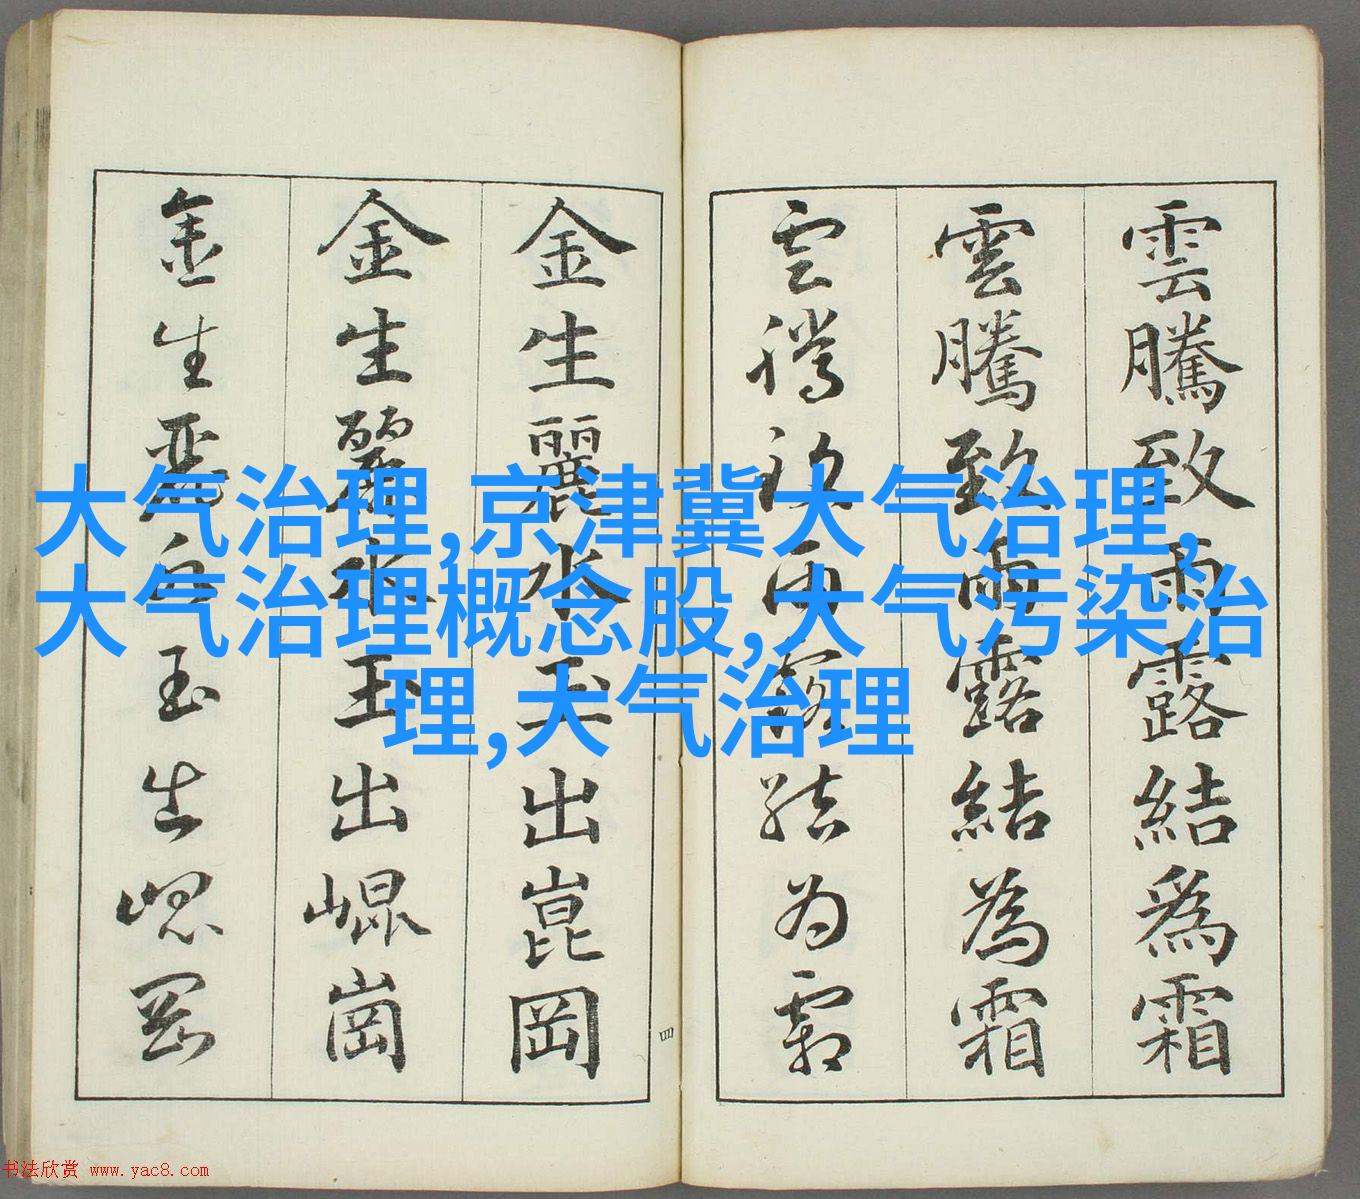 雲騰致雨露結爲霜
雲騰致雨露結為霜
雲騰致雨露結为霜
金生麗水玉出崑岡
金生麗水玉出崐崗
金生麗水玉出崐岡
四
大气治理,京津冀大气治理,
大气治理概念股,大气污染治
理,大气治理
书法欣赏 www.yac8.com